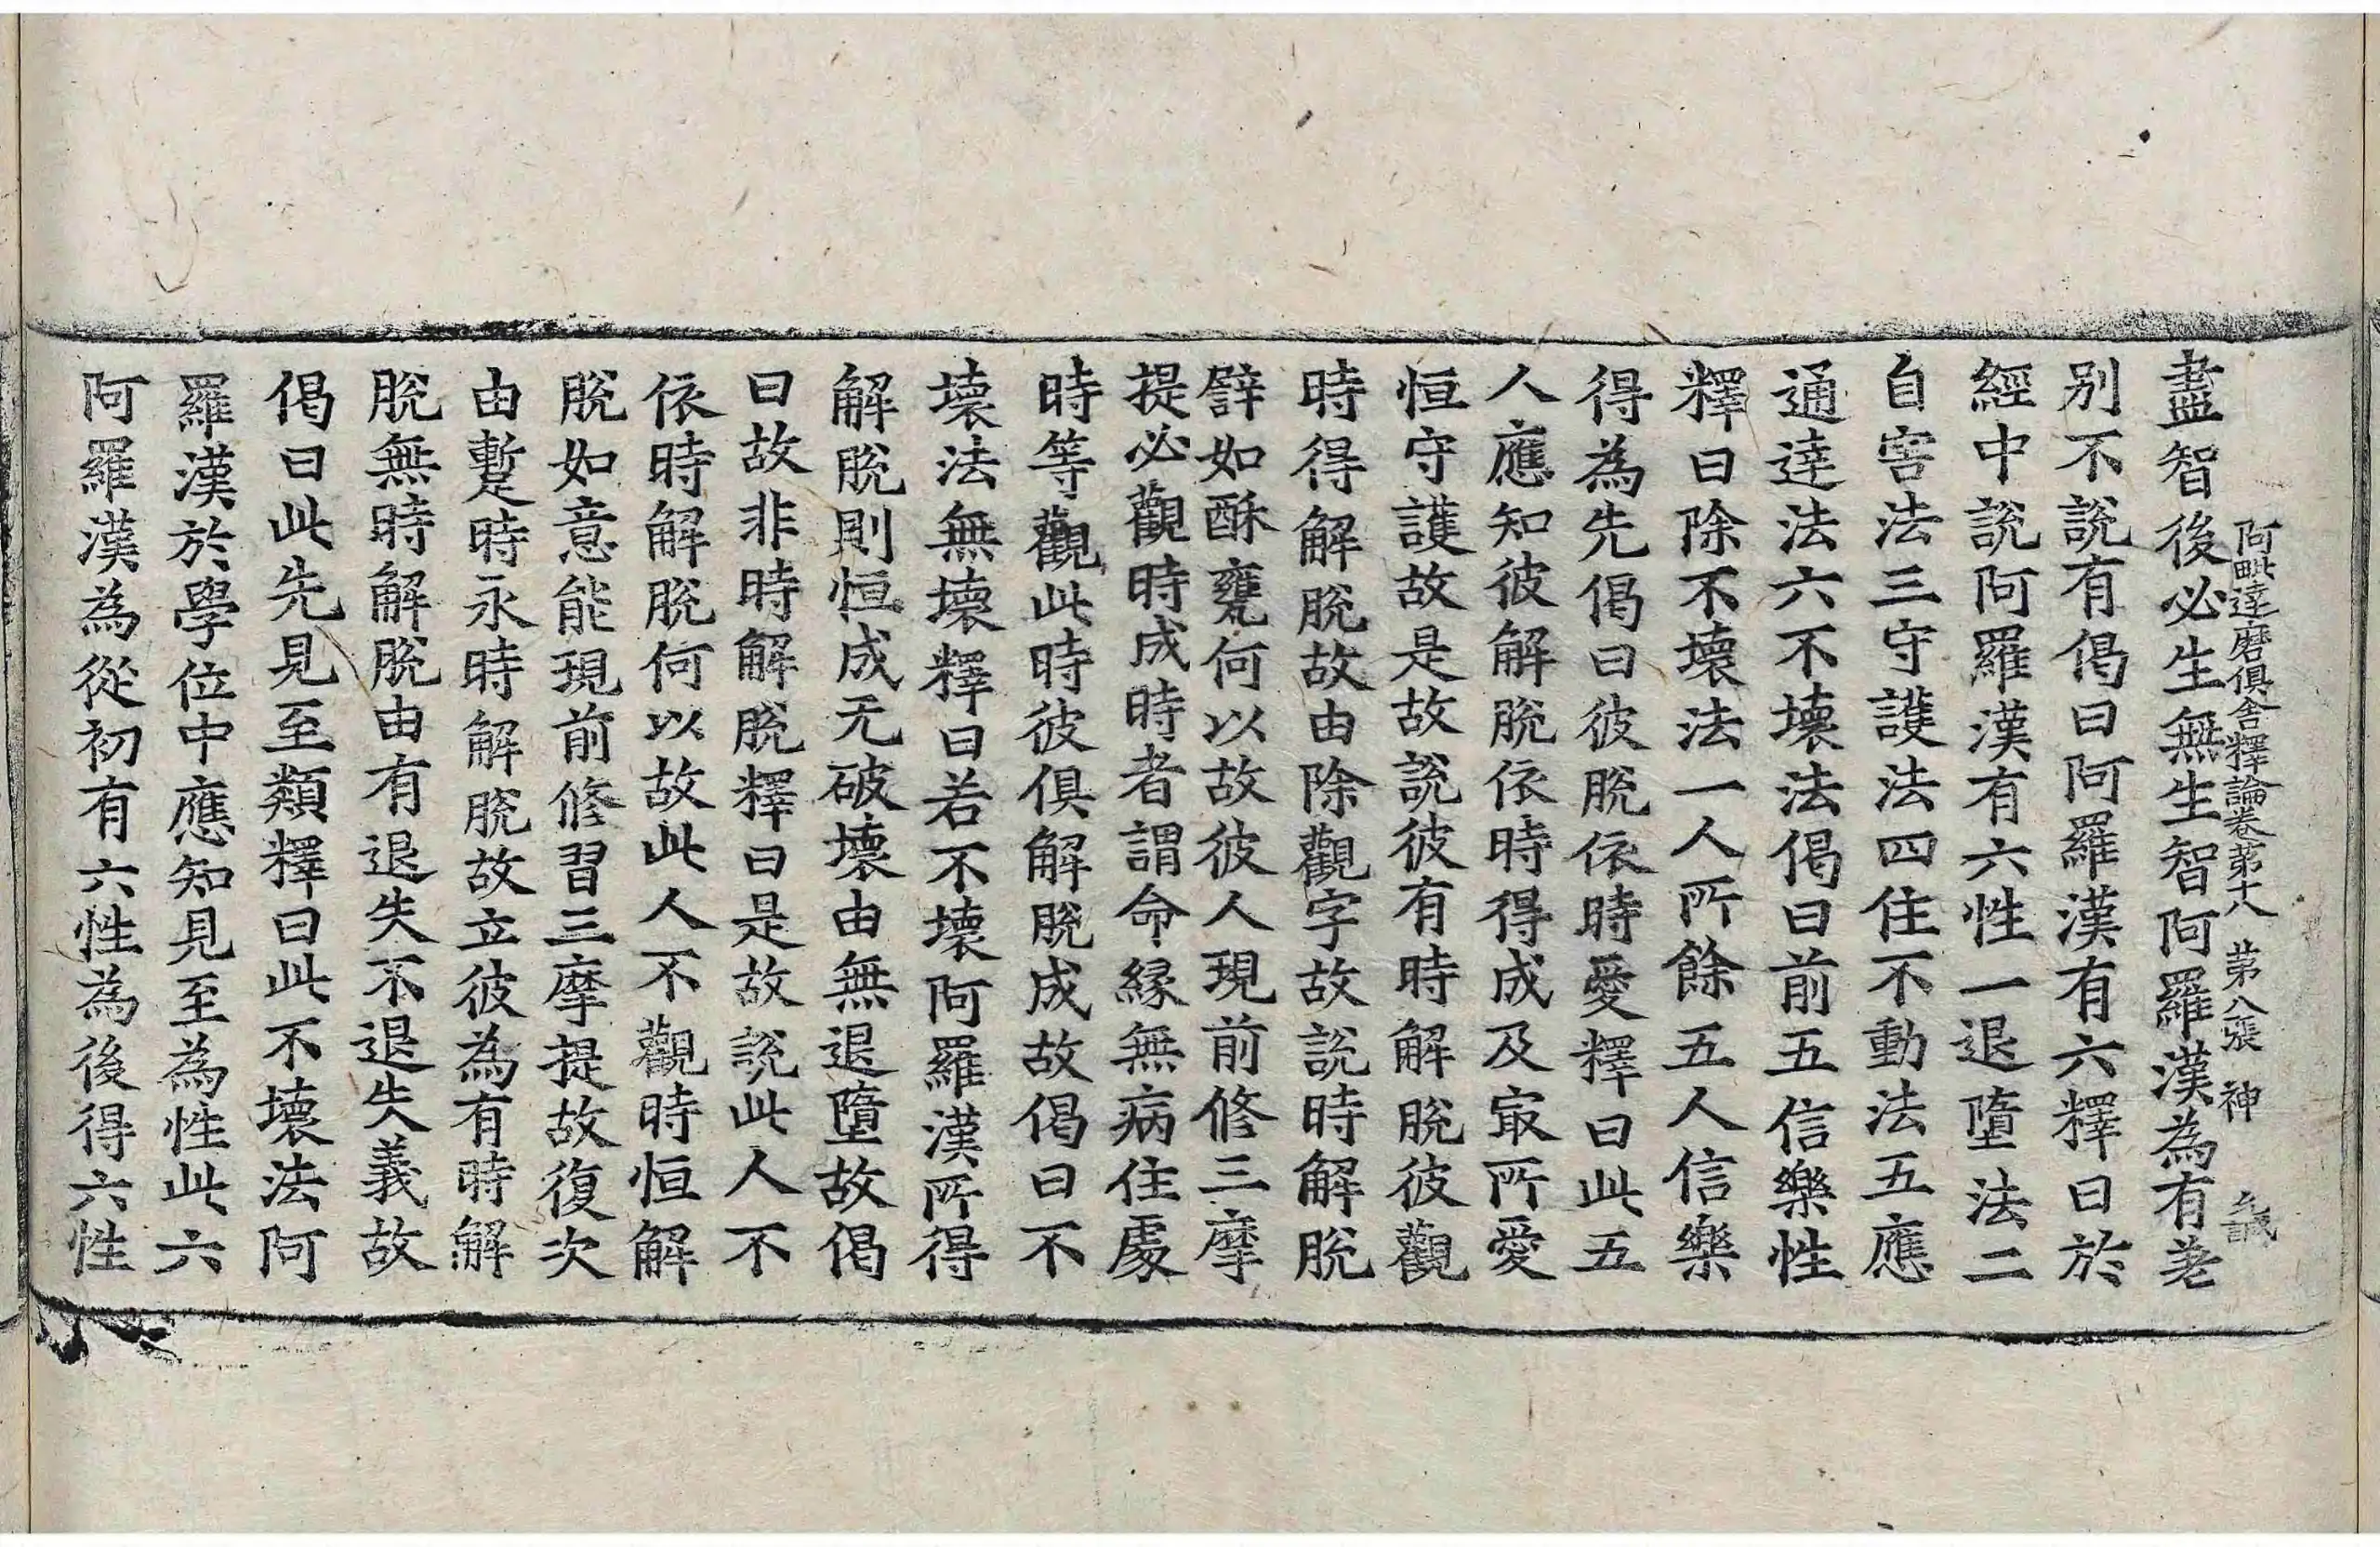 阿毗達磨俱舍釋論卷第十八 第八張 神
盡智後必生無生智阿羅漢為有差
別不說有偈曰阿羅漢有六釋曰於
經中說阿羅漢有六性一退墮法二
自害法三守護法四住不動法五應
通達法六不壞法偈曰前五信樂性
釋曰除不壞法一人所餘五人信樂
得為先偈曰彼脫依時愛釋曰此五
人應知彼解脫依時得成及㝡所愛
恒守護故是故說彼有時解脫彼觀
時得解脫故由除觀字故說時解脫
譬如酥甕何以故彼人現前修三摩
提必觀時成時者謂命緣無病住處
時等觀此時彼俱解脫成故偈曰不
壞法無壞釋曰若不壞阿羅漢所得
解脫則恒成无破壞由無退墮故偈
曰故非時解脫釋曰是故說此人不
依時解脫何以故此人不觀時恒解
脫如意能現前修習三摩提故復次
由暫時永時解脫故立彼為有時解
脫無時解脫由有退失不退失義故
偈曰此先見至類釋曰此不壞法阿
羅漢於學位中應知見至為性此六
阿羅漢為從初有六性為後得六性